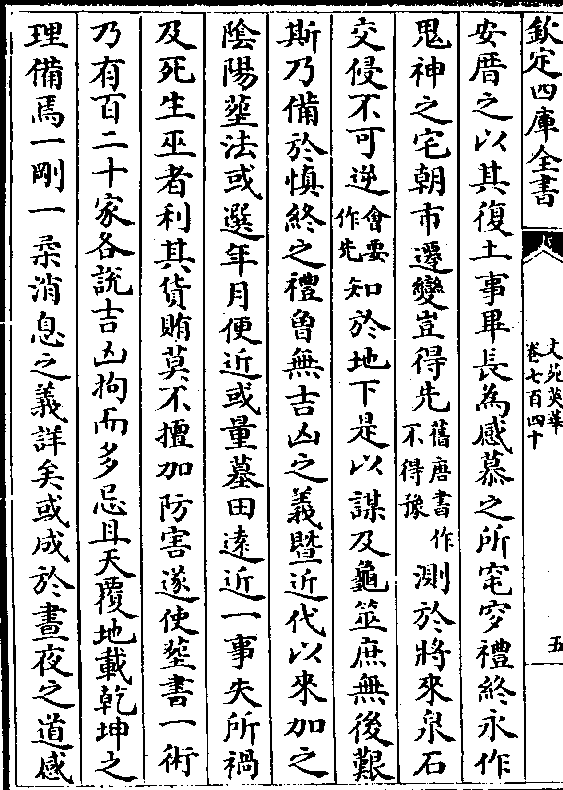 欽定四庫全書
文苑英華
卷七百四十
五
安厝之以其復土事畢長為感慕之所窀穸禮終永作
鬼神之宅朝市遷變豈得先舊唐書作不得豫測於將來泉石
交侵不可逆會要作先知於地下是以謀及龜筮庶無後艱
斯乃備於慎終之禮曾無吉凶之義暨近代以來加之
陰陽塟法或選年月便近或量墓田逺近一事失所禍
及死生巫者利其貨賄莫不擅加防害遂使塟書一術
乃有百二十家各説吉凶拘而多忌且天覆地載乾坤之
理備焉一剛一柔消息之義詳矣或成於晝夜之道感